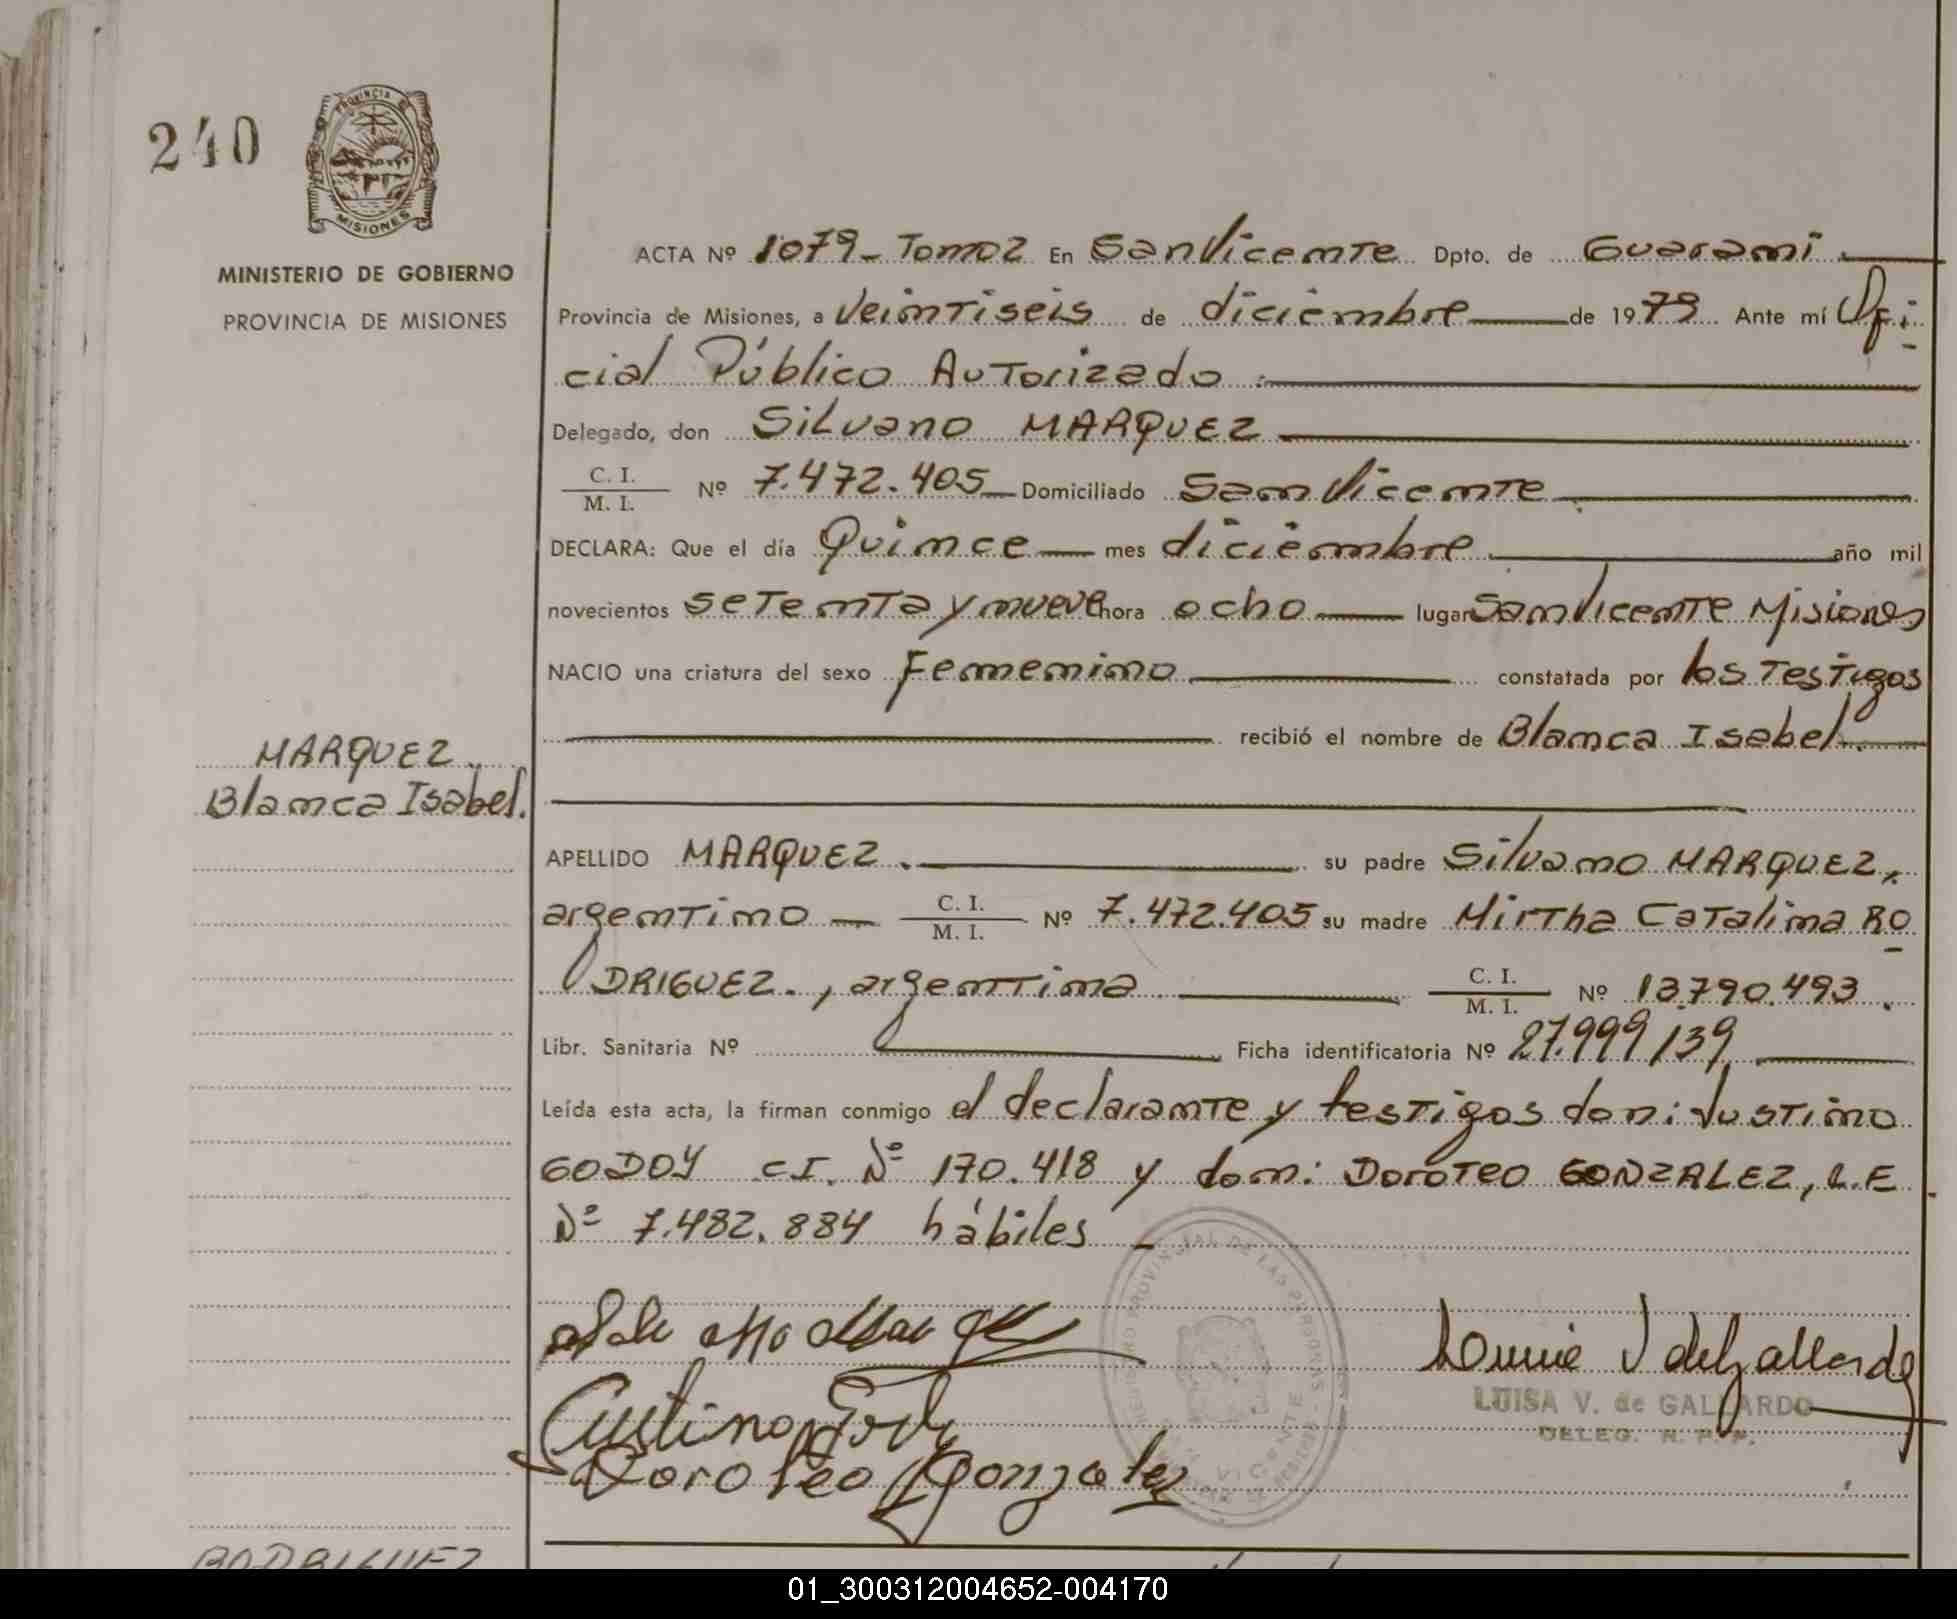 240
PROVINCIA DE
MISIONES
MINISTERIO DE GOBIERNO
PROVINCIA DE MISIONES
MARQUEZ
Blanca Isabel.
ACTA Nº 1079 - Tomo 2 En San Vicente Dpto. de Guarani
Provincia de Misiones, a Veintiseis de diciembre de 1979 Ante mí Ofi-
cial Público Autorizado
Delegado, don Silvano MARQUEZ
C. I.
M. I. Nº 7.472.405 Domiciliado San Vicente
DECLARA: Que el día Quince mes diciembre año mil
novecientos setenta y nueve hora ocho lugar San Vicente Misiones
NACIO una criatura del sexo Femenino constatada por los Testigos
recibió el nombre de Blanca Isabel.
APELLIDO MARQUEZ. su padre Silvano MARQUEZ,
argentino C. I.
M. I. Nº 7.472.405 su madre Mirtha Catalina RO-
DRIGUEZ., argentina C. I.
M. I. Nº 13.790.493.
Libr. Sanitaria Nº Ficha identificatoria Nº 27.999/39
Leída esta acta, la firman conmigo el declarante y testigos don: Justino
GODOY C.I. Nº 170.418 y don: Doroteo GONZALEZ, L.E.
Nº 7.482.884 hábiles -
REGISTRO PROVINCIAL DE LAS PERSONAS
VICENTE
LUISA V. de GALLARDO
DELEG. R. P. P.
Doroteo Gonzalez
RODRIGUEZ
01_300312004652-004170